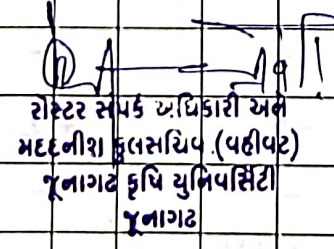 રોસ્ટર સંપર્ક અધિકારી અને
મદદનીશ કુલસચિવ (વહીવટ)
જૂનાગઢ કૃષિ યુનિવર્સિટી
જૂનાગઢ